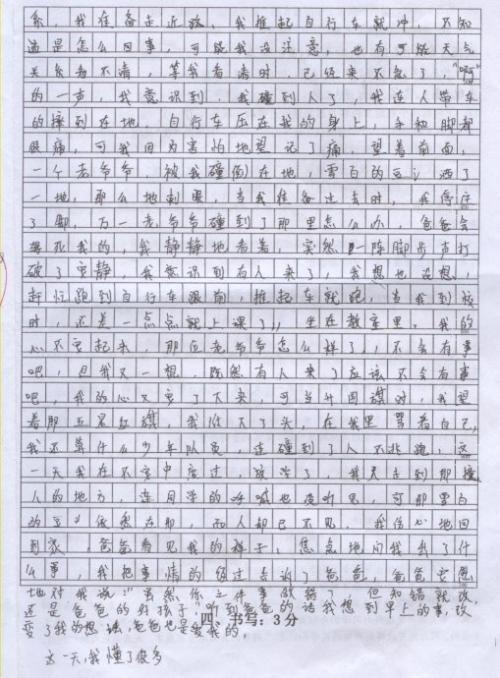 系，我准备走近路，我推起自行车就冲，不知
道是怎么回事，可能我没注意，也有可能天气
关系看不清，等我看清时，已经来不急了，“啊”
的一声，我意识到，我碰到人了，我连人带车
的摔到在地，自行车压在我的身上，手和脚都
很痛，可我因为害怕地忘记了痛，望着前面，
一个老爷爷，被我碰倒在地，雪白的豆汁洒了
一地，那么地刺眼，当我准备过去时，我停住
了脚，万一老爷爷碰到了那里怎么办，爸爸会
我的，我静静地看着，突然，一阵脚步声打
破了寂静，我意识到有人来了，我想也没想，
赶忙跑到自行车跟前，推起车就跑，当我到校
时，还差一点点就上课了，坐在教室里，我的
心不安起来，那位老爷爷怎么样了，不会有事
吧，但我又一想，既然有人来了应该不会有事
吧，我的心又安了下来，可当升国旗时，我望
着那五星红旗，我低下了头，在我里骂着自己，
我还算什么少年队员，连碰到了人不扶跑，这
一天我在不安中度过，放学了，我又走到那撞
人的地方，连同学的呼喊也没听见，可那雪白
的豆汁依然在那，而人却已不见，我伤心地回
到家，爸爸看见我的样子，急急地问我出了什
么事，我把事情的经过告诉了爸爸，爸爸
地对我说：“虽然你这件事做错了，但知错就改，
还是爸爸的好孩子”听到爸爸的话我想到早上的事，改
变了我的想法，爸爸也是爱我的，
四、书写：3分
这一天，我懂了很多